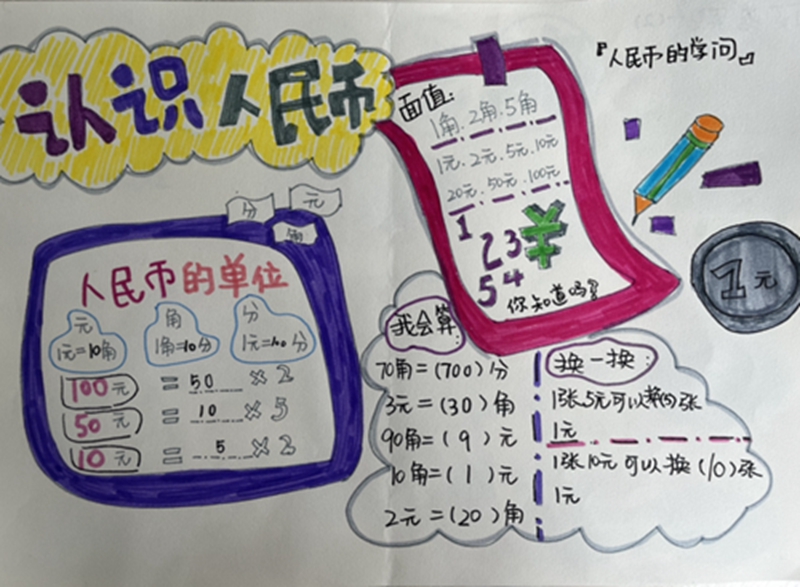 认识人民币
『人民币的学问』
面值:
1角.2角.5角
1元.2元.5元.10元
20元.50元.100元
1
2 3 ¥
5 4
你知道吗?
1元
分 元
角
人民币的单位
元 角 分
1元=10角 1角=10分
100元 = 50 × 2
50元 = 10 × 5
10元 = 5 × 2
我会算
70角=(700)分
3元=(30)角
90角=(9)元
10角=(1)元
2元=(20)角
换一换:
1张5元可以换(5)张
1元
1张10元可以换(10)张
1元